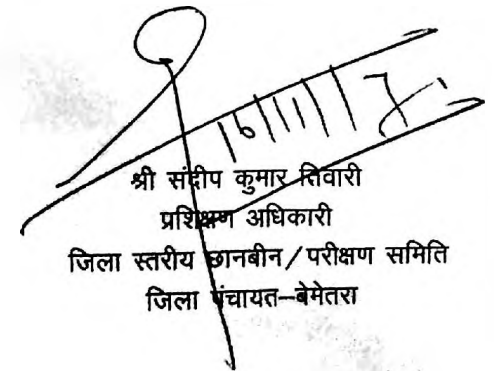 श्री संदीप कुमार तिवारी
प्रशिक्षण अधिकारी
जिला स्तरीय छानबीन/परीक्षण समिति
जिला पंचायत–बेमेतरा